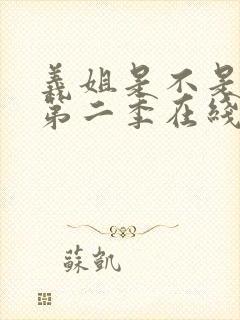 義姐是不是
第二季在綫
蘇凱